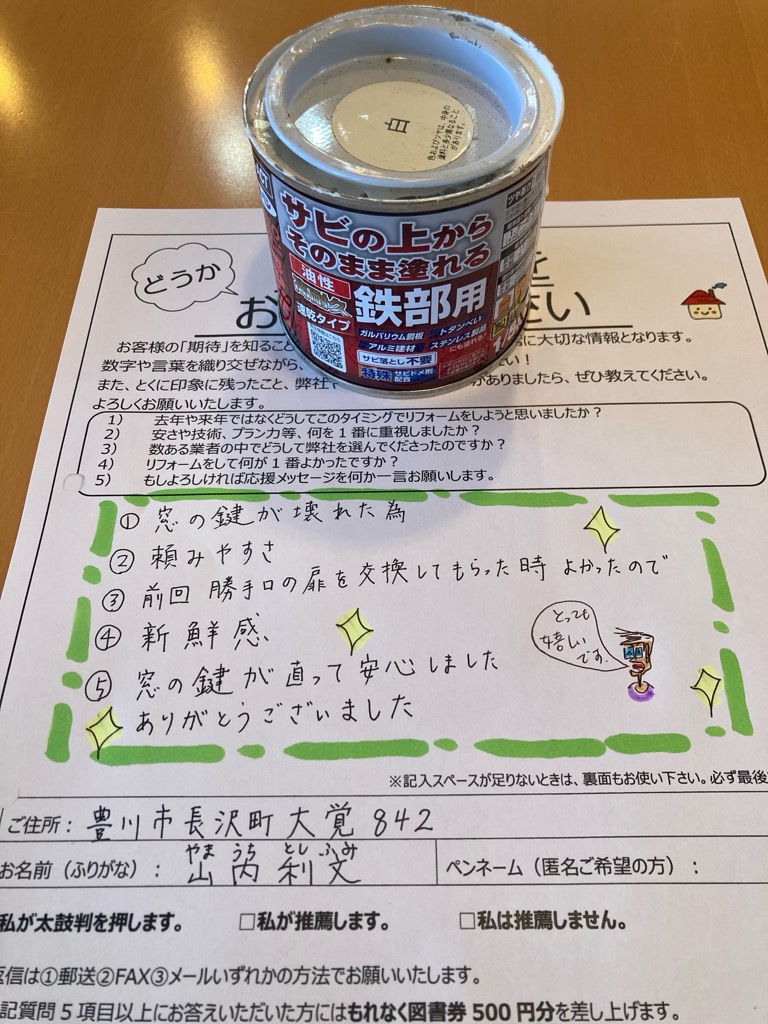 白
色およびツヤは、中身の
塗料と多少異なること
があります。
サビの上から
そのまま塗れる
油性
鉄部用
速乾タイプ
ガルバリウム鋼板
トタンべい
アルミ建材
ステンレス製品
にも塗れる!
サビ落とし不要
特殊サビドメ剤配合
どうか
お
さい
お客様の「期待」を知ること
に大切な情報となります。
数字や言葉を織り交ぜながら、
い!
また、とくに印象に残ったこと、弊社や
がありましたら、ぜひ教えてください。
よろしくお願いいたします。
1) 去年や来年ではなくどうしてこのタイミングでリフォームをしようと思いましたか?
2) 安さや技術、プラン力等、何を1番に重視しましたか?
3) 数ある業者の中でどうして弊社を選んでくださったのですか?
4) リフォームをして何が1番よかったですか?
5) もしよろしければ応援メッセージを何か一言お願いします。
① 窓の鍵が壊れた為
② 頼みやすさ
③ 前回 勝手口の扉を交換してもらった時 よかったので
④ 新鮮感、
⑤ 窓の鍵が直って安心しました
ありがとうございました
とっても
嬉しい
です。
※記入スペースが足りないときは、裏面もお使い下さい。必ず最後
ご住所: 豊川市長沢町大覚842
お名前(ふりがな): 山内利文
やま うち とし ふみ
ペンネーム(匿名ご希望の方):
私が太鼓判を押します。 □私が推薦します。 □私は推薦しません。
返信は①郵送②FAX③メールいずれかの方法でお願いいたします。
記質問5項目以上にお答えいただいた方にはもれなく図書券500円分を差し上げます。